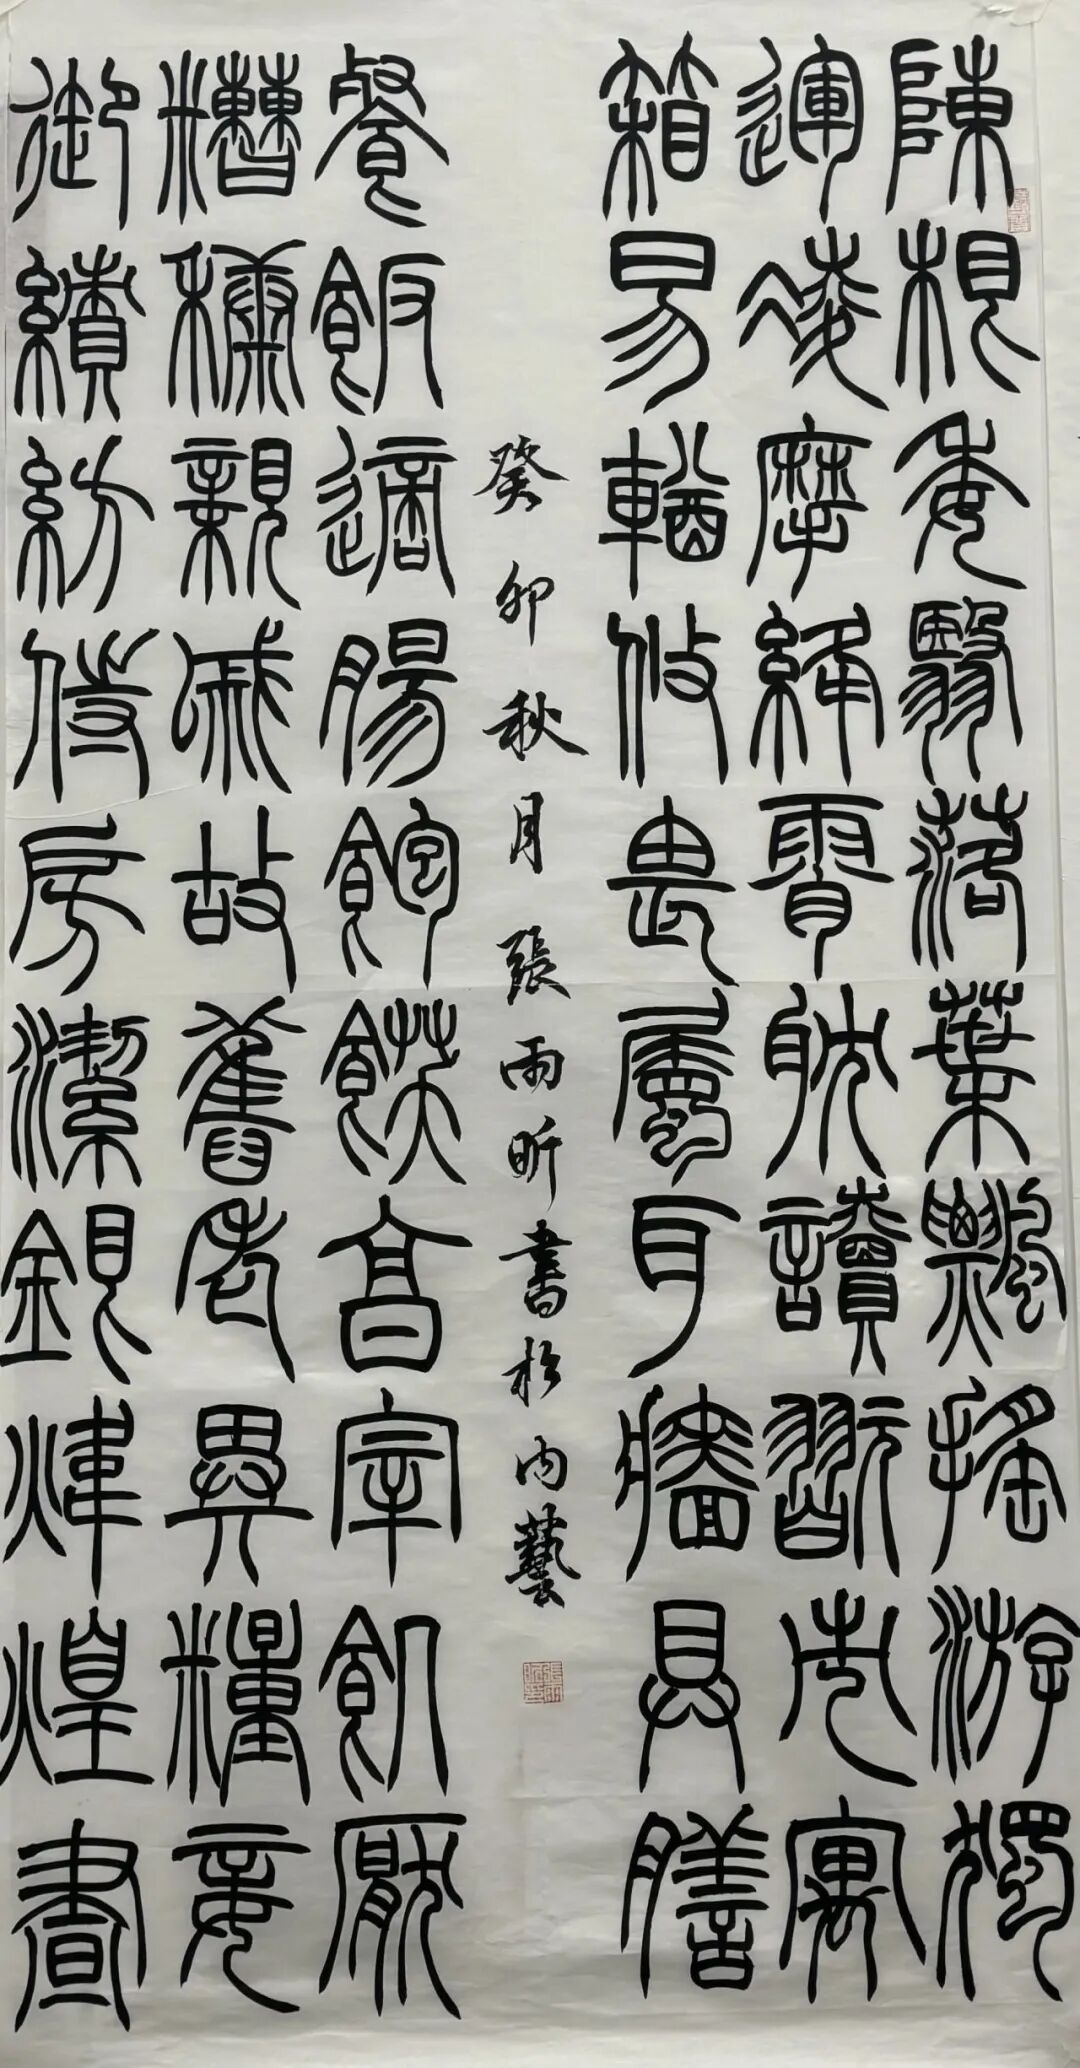 陳根委翳落葉飄搖游獨
運凌摩絳霄耽讀翫市寓
箱易輶攸畏屬耳牆具膳
癸卯秋月張雨昕書於內藝
餐飯適腸飽飫亨宰飢厭
糟糠親戚故舊老異糧妾
御績紡侍房潔銀煒煌晝